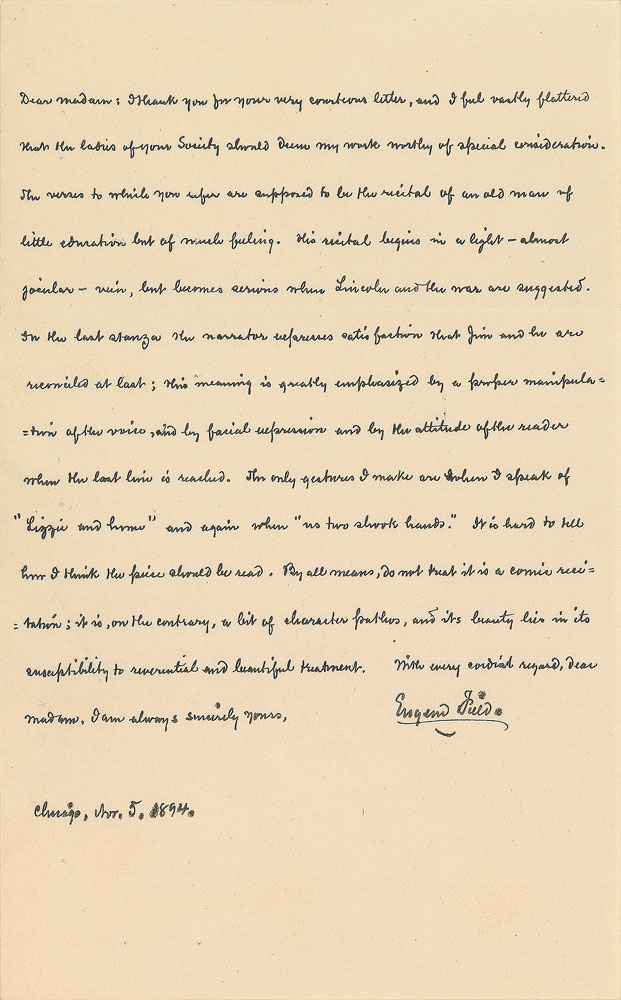 Dear madam: I thank you for your very courteous letter, and I feel vastly flattered
that the ladies of your Society should deem my work worthy of special consideration.
The verses to which you refer are supposed to be the recital of an old man of
little education but of much feeling. His recital begins in a light – almost
jocular – vein, but becomes serious when Lincoln and the war are suggested.
In the last stanza the narrator expresses satisfaction that Jim and he are
reconciled at last; this meaning is greatly emphasized by a proper manipula=
=tion of the voice, and by facial expression and by the attitude of the reader
when the last line is reached. The only gestures I make are when I speak of
"Lizzie and home" and again when "us two shook hands." It is hard to tell
how I think the piece should be read. By all means, do not treat it is a comic reci=
=tation; it is, on the contrary, a bit of character pathos, and its beauty lies in its
susceptibility to reverential and beautiful treatment. With every cordial regard, dear
madam, I am always sincerely yours,
Eugene Field.
Chicago, Nov. 5, 1894.